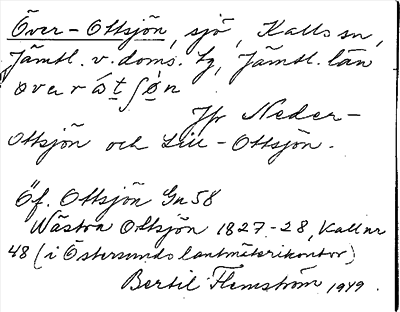 Över-Ottsjön, sjö, Kalls sn,
Jämtl. v. doms. tg, Jämtl. län
Jfr Neder-
Ottsjön och Lill-Ottsjön.
Öf. Ottsjön Gs 58
Wästra Ottsjön 1827-28, Kall nr
48 (i Östersunds lantmäterikontor)
Bertil Flemström 1949.